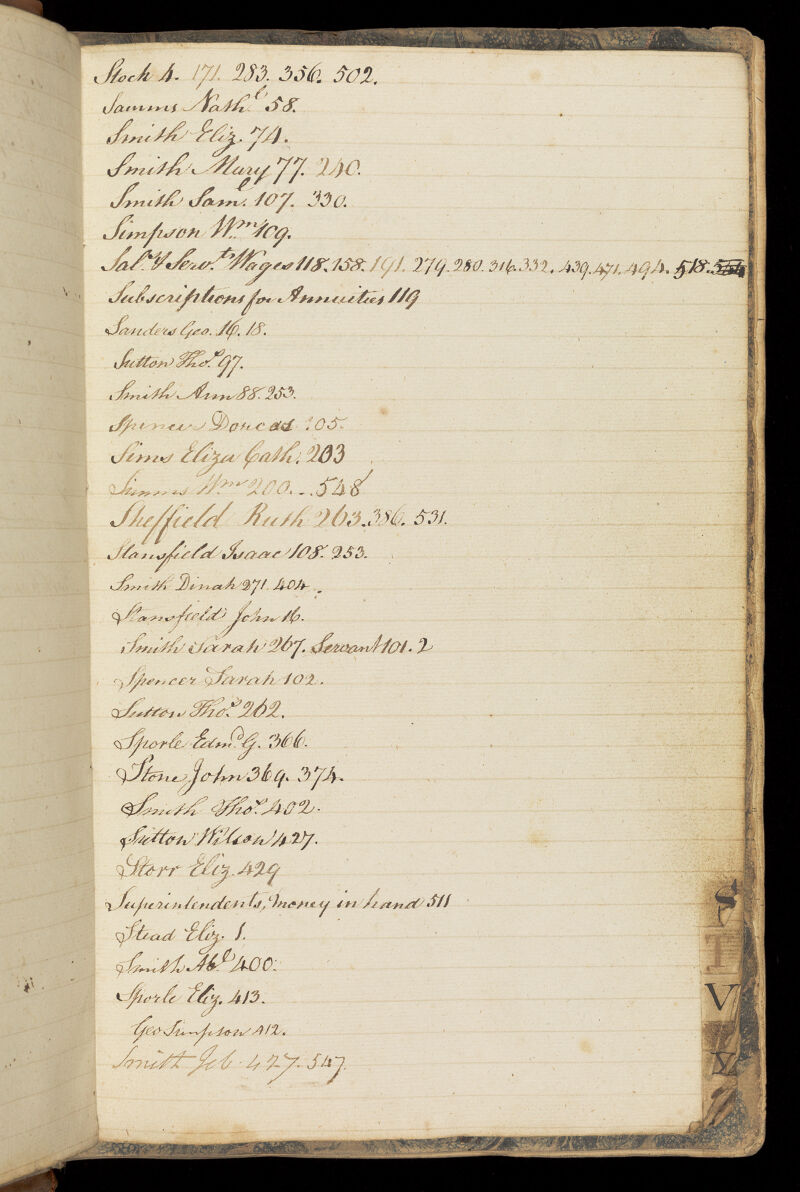 Stock 4. 171. 283. 356. 502.
Samms Nath.l 58.
Smith Eliz. 74.
Smith Mary 77. 240.
Smith Sam.l 107. 330.
Simpson Wm. 109.
Sal.s & Serv.ts Wages 118. 158. 191. 279. 280. 316. 332. 439. 471. 494. 518.
Subscriptions for Annuities 119
Sanders Geo. 16. 18.
Sutton Tho.s 97.
Smith Ann 88. 253.
Spencer Dorcas 105.
Sims Eliza Cath. 203
Simms Wm 200. - . 548
Sheffield Ruth 263. 386. 531.
Stansfield Isaac 108. 253.
Smith Dinah 271. 404.
Stansfield John 16.
Smith Sarah 267. Servant 101. 2
Spencer Sarah 102.
Sutton Tho.s 262.
Sporle Edm.d G. 366.
Stone John 369. 374.
Smith Tho.s 402.
Sutton Wilson 427.
Storr Eliz. 429
Superintendents, money in hand 511
Stead Eliz. 1.
Smith Ab.l 400.
Sporle Eliz. 413.
Geo Simpson 412.
Smith Jcb 427. 547
S
T
V